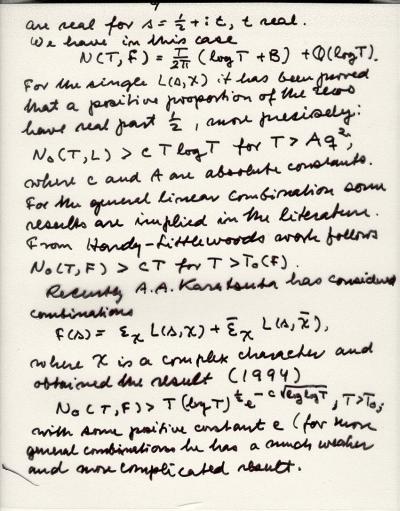 are real for s = ½ + it, t real.
We have in this case
N(T, F) = T/2π (log T + B) + O(log T).
For the single L(s, χ) it has been proved
that a positive proportion of the zeros
have real part ½, more precisely:
N₀(T, L) > c T log T for T > A q²,
where c and A are absolute constants.
For the general linear combination some
results are implied in the literature.
From Hardy-Littlewoods work follows
N₀(T, F) > cT for T > T₀(F).
Recently A.A. Karatsuba has considered
combinations
F(s) = ε_χ L(s, χ) + ε̄_χ L(s, χ̄),
where χ is a complex character and
obtained the result (1994)
N₀(T, F) > T (log T)^½ e^{-c√(log log T)}, T > T₀;
with some positive constant c (for more
general combinations he has a much weaker
and more complicated result.